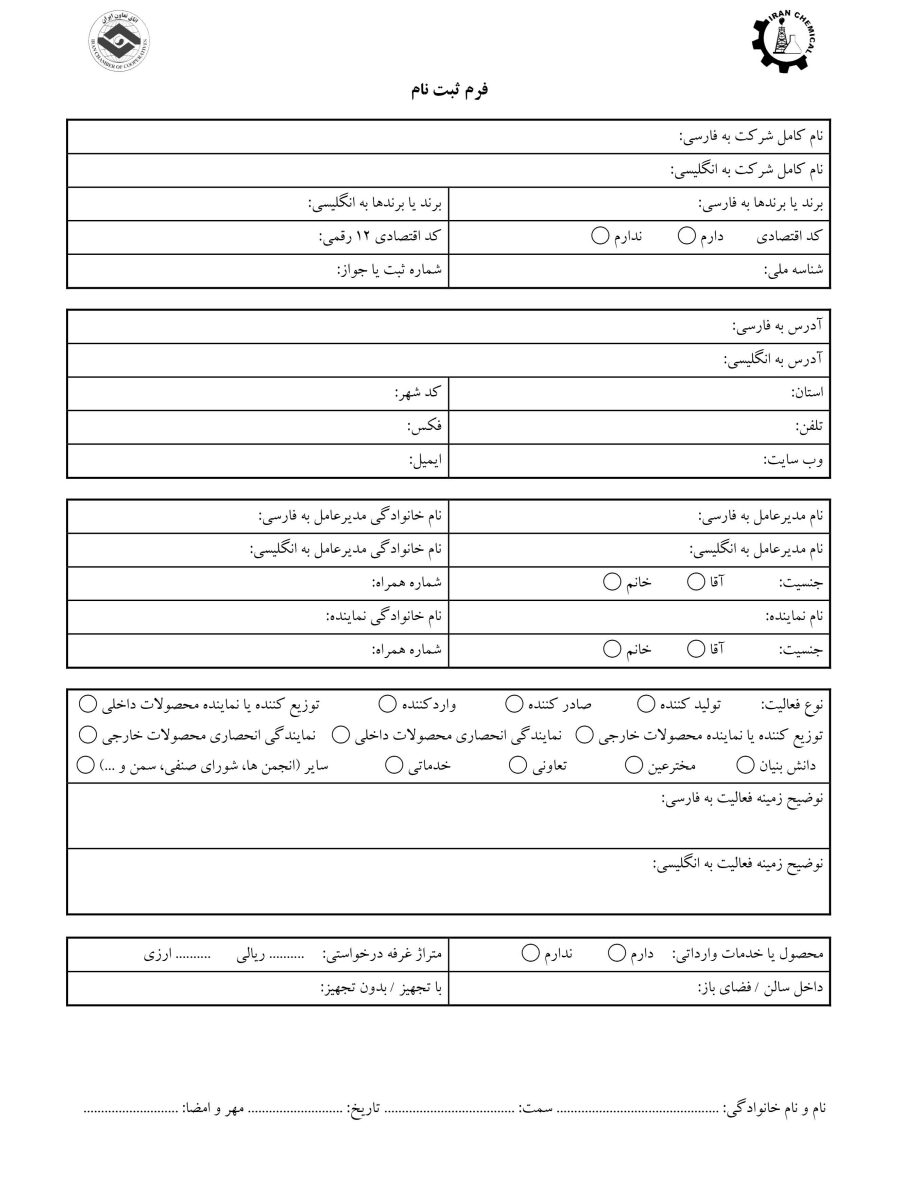 IRAN CHEMICAL
اتاق تعاون ایران
IRAN CHAMBER OF COOPERATIVES
فرم ثبت نام
نام کامل شرکت به فارسی:
نام کامل شرکت به انگلیسی:
برند یا برندها به فارسی: برند یا برندها به انگلیسی:
کد اقتصادی دارم ندارم کد اقتصادی ۱۲ رقمی:
شناسه ملی: شماره ثبت یا جواز:
آدرس به فارسی:
آدرس به انگلیسی:
استان: کد شهر:
تلفن: فکس:
وب سایت: ایمیل:
نام مدیرعامل به فارسی: نام خانوادگی مدیرعامل به فارسی:
نام مدیرعامل به انگلیسی: نام خانوادگی مدیرعامل به انگلیسی:
جنسیت: آقا خانم شماره همراه:
نام نماینده: نام خانوادگی نماینده:
جنسیت: آقا خانم شماره همراه:
نوع فعالیت: تولید کننده صادر کننده واردکننده توزیع کننده یا نماینده محصولات داخلی
توزیع کننده یا نماینده محصولات خارجی نمایندگی انحصاری محصولات داخلی نمایندگی انحصاری محصولات خارجی
دانش بنیان مخترعین تعاونی خدماتی سایر (انجمن ها، شورای صنفی، سمن و ...)
توضیح زمینه فعالیت به فارسی:
توضیح زمینه فعالیت به انگلیسی:
محصول یا خدمات وارداتی: دارم ندارم متراژ غرفه درخواستی: .......... ریالی .......... ارزی
داخل سالن / فضای باز: با تجهیز / بدون تجهیز:
نام و نام خانوادگی: .............................................. سمت: ..................................... تاریخ: ........................... مهر و امضا: ...........................